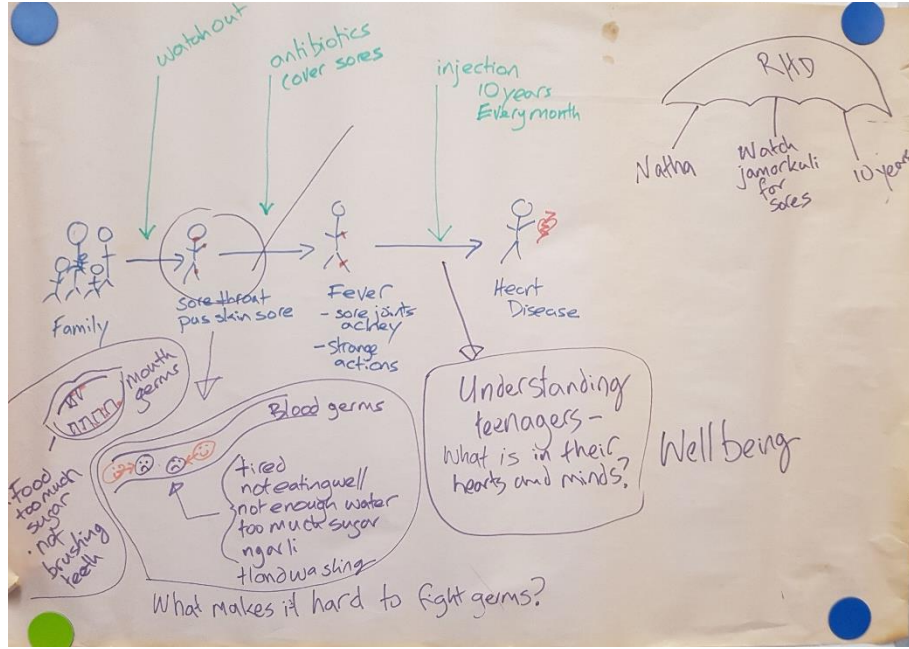 watch out
antibiotics
cover sores
injection
10 years
Every month
RHD
Natha
Watch
jamorkuli
for
sores
10 years
Family
sore throat
pus skin sore
Fever
- sore joints
achey
- strange
actions
Heart
Disease
mouth
germs
Food
too much
sugar
. not
brushing
teeth
Blood germs
tired
not eating well
not enough water
too much sugar
ngarli
Handwashing
What makes it hard to fight germs?
Understanding
teenagers -
What is in their
hearts and minds?
Wellbeing